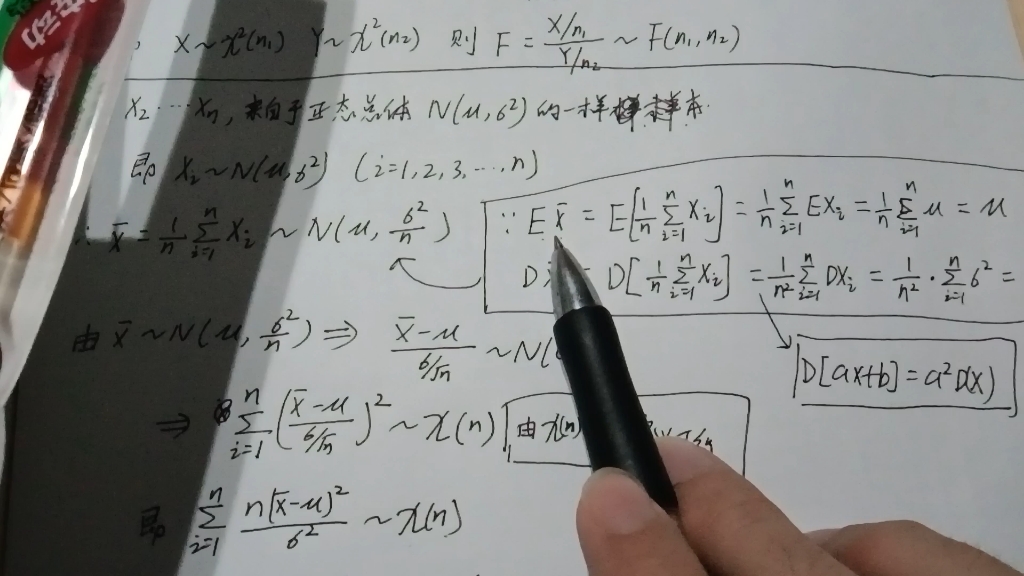 动
X~χ²(n₁) Y~χ²(n₂) 则 F = (X/n₁)/(Y/n₂) ~ F(n₁,n₂)
X₂ ⋯ Xₙ, 来自于正态总体 N(μ,σ²) 的一样本
即 Xᵢ~N(μ,σ²) (i=1,2,3,⋯,n)
∴ x̄ = 1/n ∑ᵢ₌₁ⁿ Xᵢ ~ N(μ, σ²/n)
∵ E x̄ = E[1/n ∑ᵢ₌₁ⁿ Xᵢ] = 1/n ∑ᵢ₌₁ⁿ EXᵢ = 1/n ∑ᵢ₌₁ⁿ μ = μ
D = D[1/n ∑ᵢ₌₁ⁿ Xᵢ] = 1/n² ∑ᵢ₌₁ⁿ DXᵢ = 1/n² · ∑ᵢ₌₁ⁿ σ² =
D[ax+b] = a²D(X)
由 x̄ ~ N(μ, σ²/n) ⇒ (x̄-μ)/(σ/√n) ~ N(
⇒ ∑ᵢ₌₁ⁿ ((x̄-μ)/(σ/√n))² ~ χ(n)
由 χ(n)
即 ∑ᵢ₌₁ⁿ n(x̄-μ)²/σ² ~ χ(n)